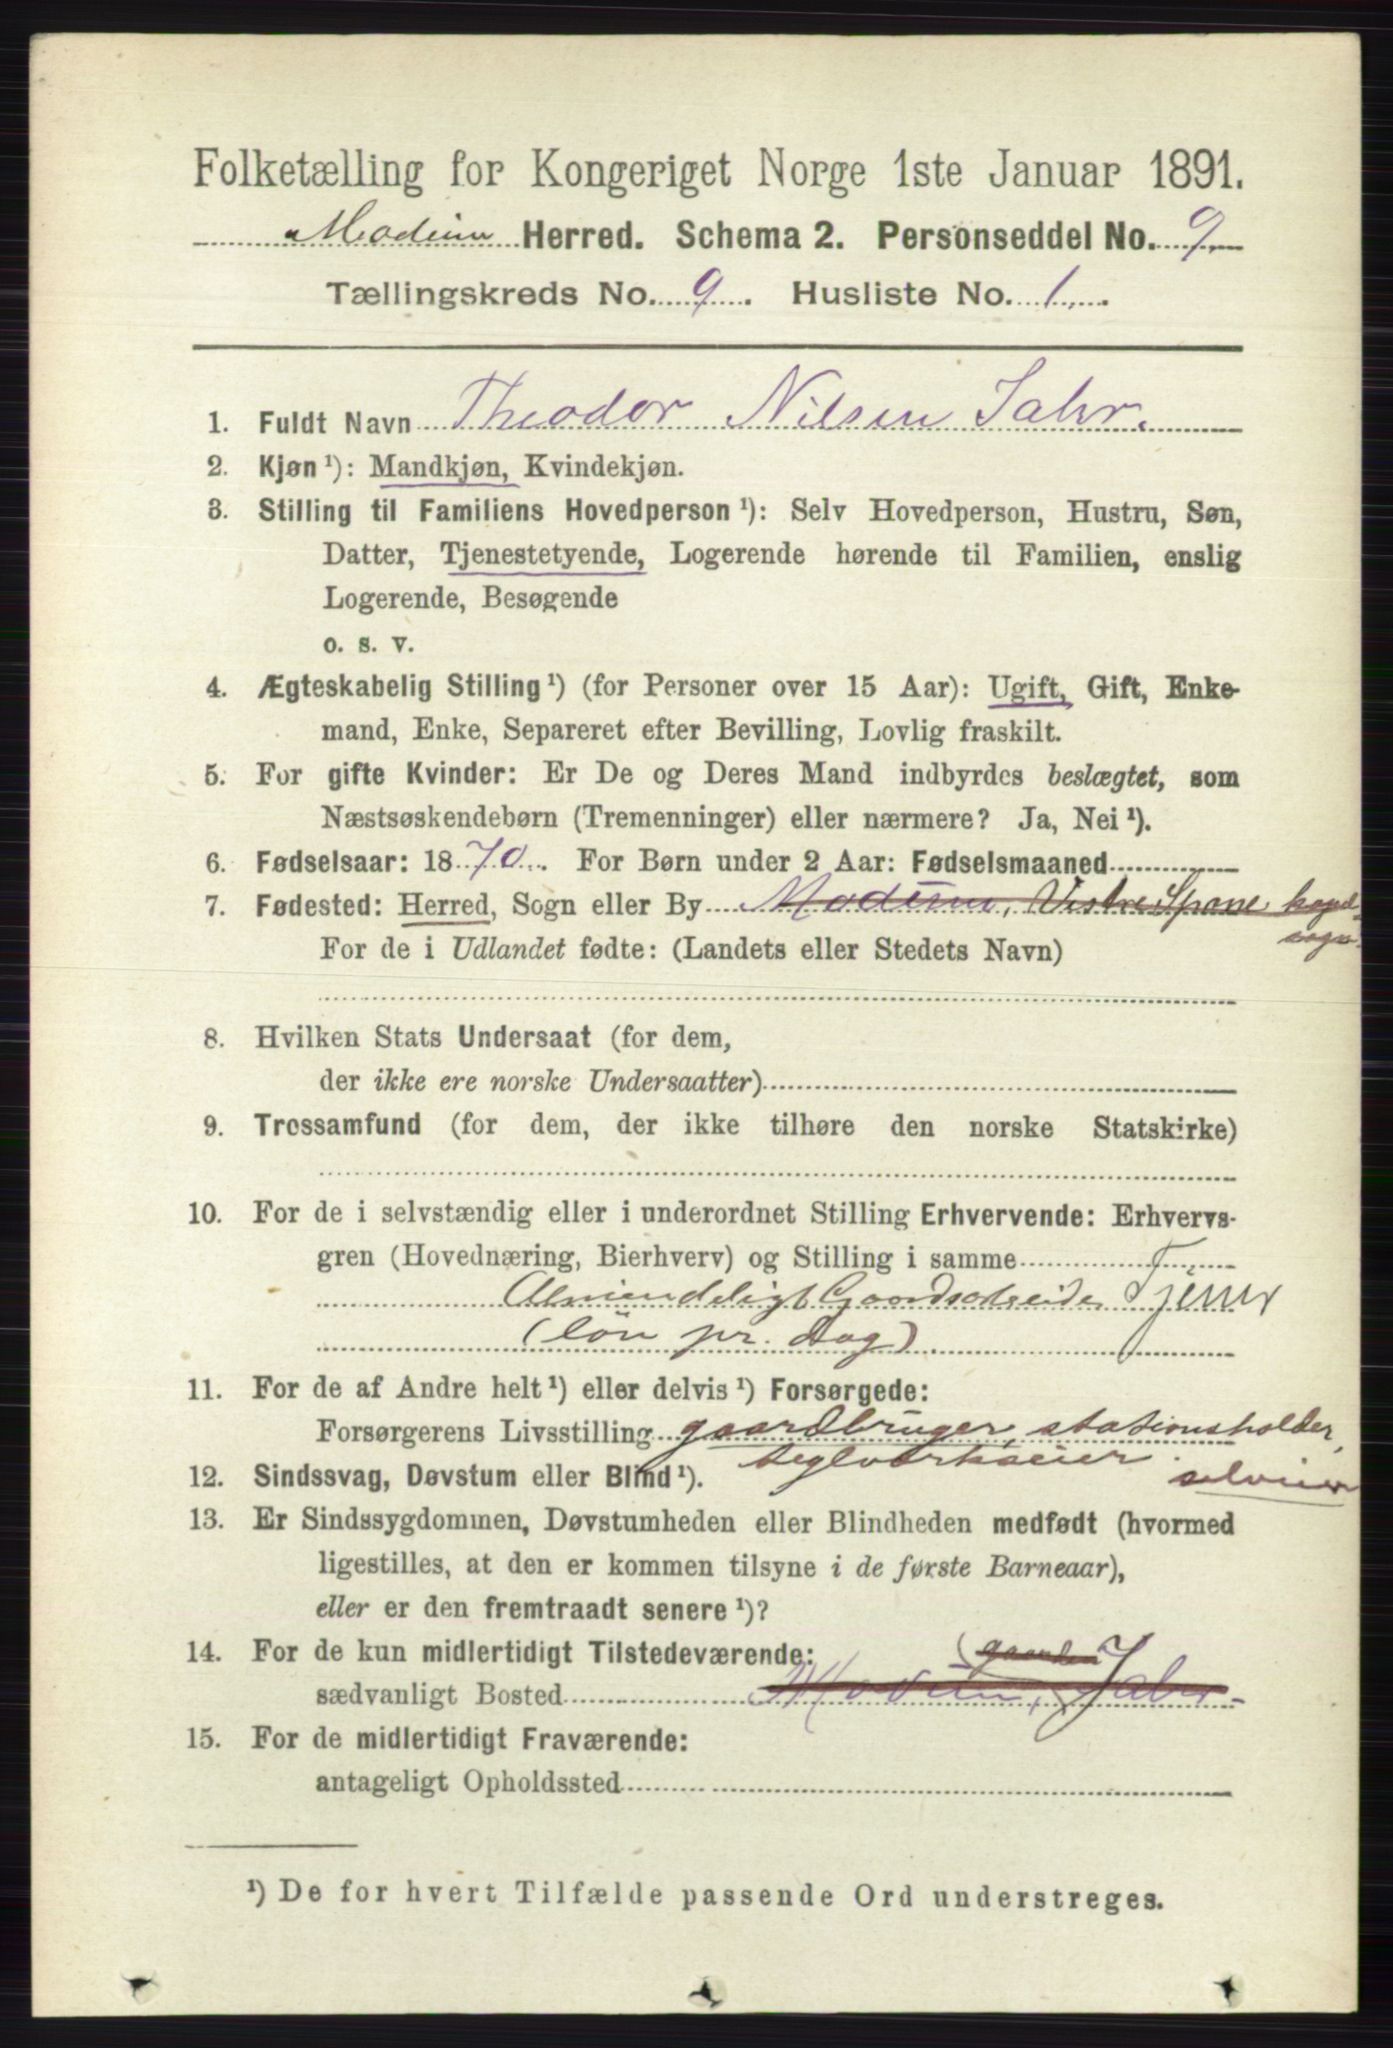 Folketælling for Kongeriget Norge 1ste Januar 1891.
Modum Herred. Schema 2. Personseddel No. 9.
Tællingskreds No. 9. Husliste No. 1.
1. Fuldt Navn Theodor Nilsen Jahr.
2. Kjøn ¹): Mandkjøn, Kvindekjøn.
3. Stilling til Familiens Hovedperson ¹): Selv Hovedperson, Hustru, Søn,
Datter, Tjenestetyende, Logerende hørende til Familien, enslig
Logerende, Besøgende
o. s. v.
4. Ægteskabelig Stilling ¹) (for Personer over 15 Aar): Ugift, Gift, Enke-
mand, Enke, Separeret efter Bevilling, Lovlig fraskilt.
5. For gifte Kvinder: Er De og Deres Mand indbyrdes beslægtet, som
Næstsøskendebørn (Tremenninger) eller nærmere? Ja, Nei ¹).
6. Fødselsaar: 1870. For Børn under 2 Aar: Fødselsmaaned
7. Fødested: Herred, Sogn eller By Modum, Vestre Spone
For de i Udlandet fødte: (Landets eller Stedets Navn)
8. Hvilken Stats Undersaat (for dem,
der ikke ere norske Undersaatter)
9. Trossamfund (for dem, der ikke tilhøre den norske Statskirke)
10. For de i selvstændig eller i underordnet Stilling Erhvervende: Erhvervs-
gren (Hovednæring, Bierhverv) og Stilling i samme
Almindeligt Gaardsarbeide Tjener
(løn pr. Dag)
11. For de af Andre helt ¹) eller delvis ¹) Forsørgede:
Forsørgerens Livsstilling gaardbruger, stationsholder,
teglværkseier selveier
12. Sindssvag, Døvstum eller Blind ¹).
13. Er Sindssygdommen, Døvstumheden eller Blindheden medfødt (hvormed
ligestilles, at den er kommen tilsyne i de første Barneaar),
eller er den fremtraadt senere ¹)?
14. For de kun midlertidigt Tilstedeværende: (gaarden
sædvanligt Bosted Modum, Jahr
15. For de midlertidigt Fraværende:
antageligt Opholdssted
¹) De for hvert Tilfælde passende Ord understreges.